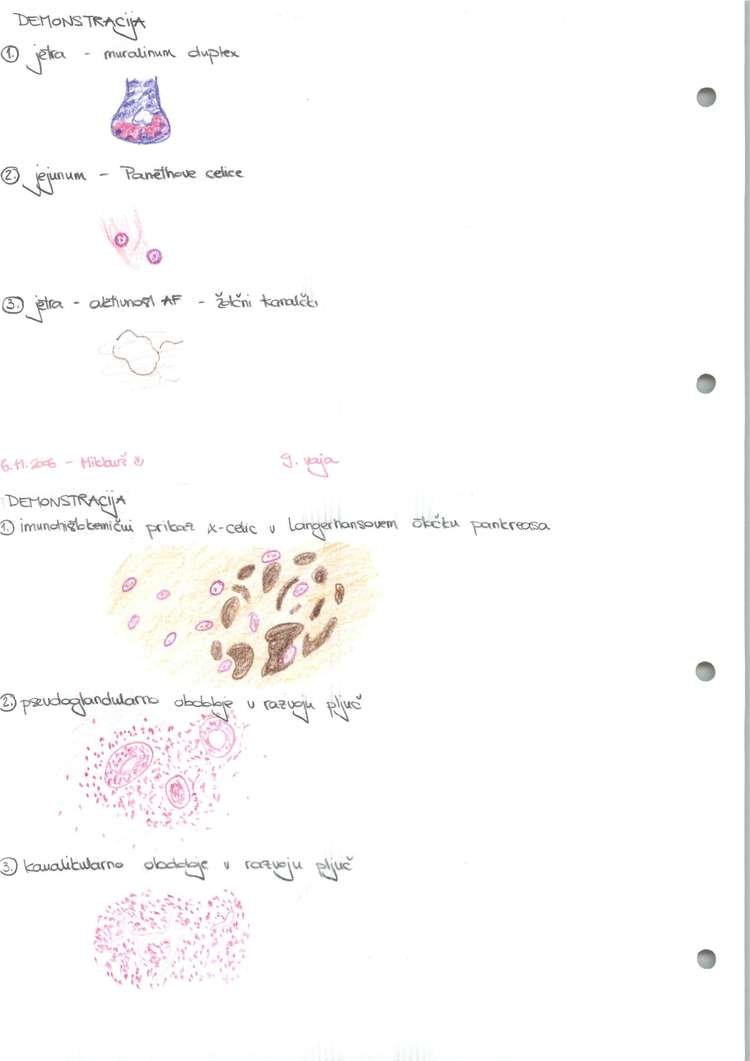 DEMONSTRACIJA
1. jetra - muralinum duplex
2. jejunum - Panethove celice
3. jetra - aktivnost AF - žolčni kanalčki
6.11.2006 - Miklavž 9. vaja
DEMONSTRACIJA
1. imunohistokemični prikaz α-celic v Langerhansovem otočku pankreasa
2. pseudoglandularno obdobje v razvoju pljuč
3. kanalikularno obdobje v razvoju pljuč